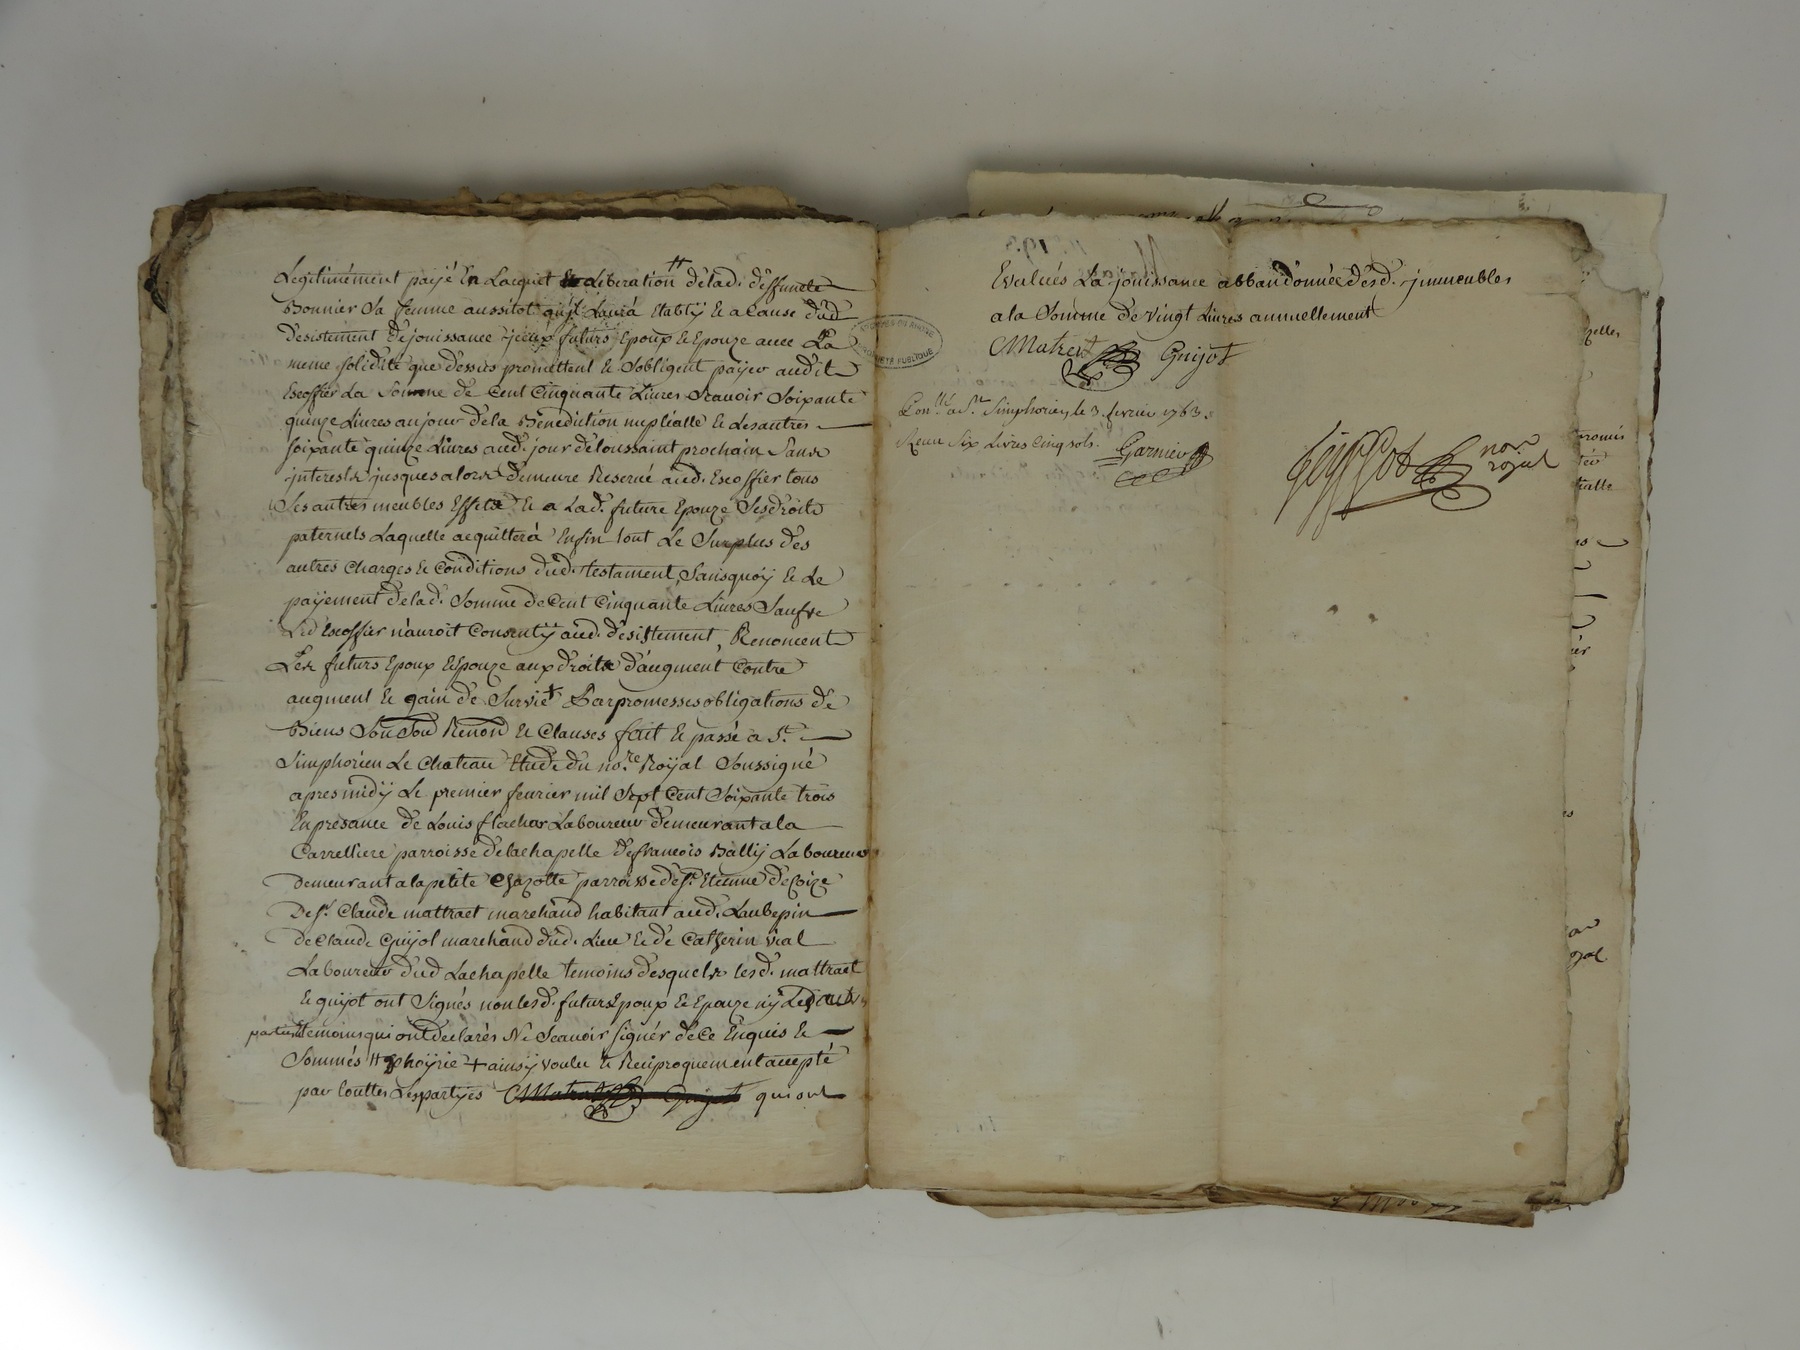 Legitimément payé En Lacquit Et Liberation # delad. deffuncte
Bonnier Sa femme aussitot qu'il Laura Etablÿ Et a Cause dud
desistement de jouissance iceux futurs Epoux Et Epouze avec La
meme solidité que dessus promettent Et S'obligent payer audit
Escoffier La Somme de Cent Cinquante Livres Scavoir Soixante
quinze Livres au jour de la Bénédiction nuptialle Et Les autres
soixante quinze Livres aud. jour de toussaint prochain Sans
interets jusques alors demeure Reservé aud. Escoffier tous
Ses autres meubles Effets Et a Lad. future Epouze Ses droits
paternels Laquelle acquittera Enfin tout Le Surplus des
autres Charges Et Conditions dud. testament, Sans quoÿ Et Le
païement de lad. Somme de Cent Cinquante Livres
Led Escoffier n'auroit Consentÿ aud. desistement, Renoncent
Les futurs Epoux Et Epouze aux droits d'augment Contre
augment Et gain de Survie + Par promesses obligations de
Biens Renon Et Clauses fait Et passé a St.
Simphorien Le Chateau Etude du no.re Roÿal Soussigné
apres midÿ Le premier fevrier mil Sept Cent Soixante trois
En présance de Louis flachar Laboureur demeurant a la
Carrelliere parroisse de la chapelle de francois Ballÿ Laboureur
Demeurant a la petite Chazotte parroisse de St. Etienne de Coize
De Sr. Claude mattraet marchand habitant aud. Laubepin
De Claude Guÿot marchand dud. Lieu Et de Catherin vial
Laboureur dud Lachapelle temoins desquels lesd. mattraet
Et guÿot ont Signés non lesd. futurs Epoux Et Epouze nÿ Les autres
parties temoins qui ont declarés Ne Scavoir Signér de Ce Enquis Et
Sommés # + ainsÿ voulu Et Reciproquement accepté
par touttes Les partÿes Guÿot qui ont
Evalués La jouissance abbandonnée desd. immeubles
a la Somme de vingt Livres annuellement
Guÿot
Con.lé a St. Simphorien le 3. fevrier 1763.
Reçu Six Livres Cinq sols. Garnier
no.re
royal
ARCHIVES DU RHONE
PROPRIETE PUBLIQUE